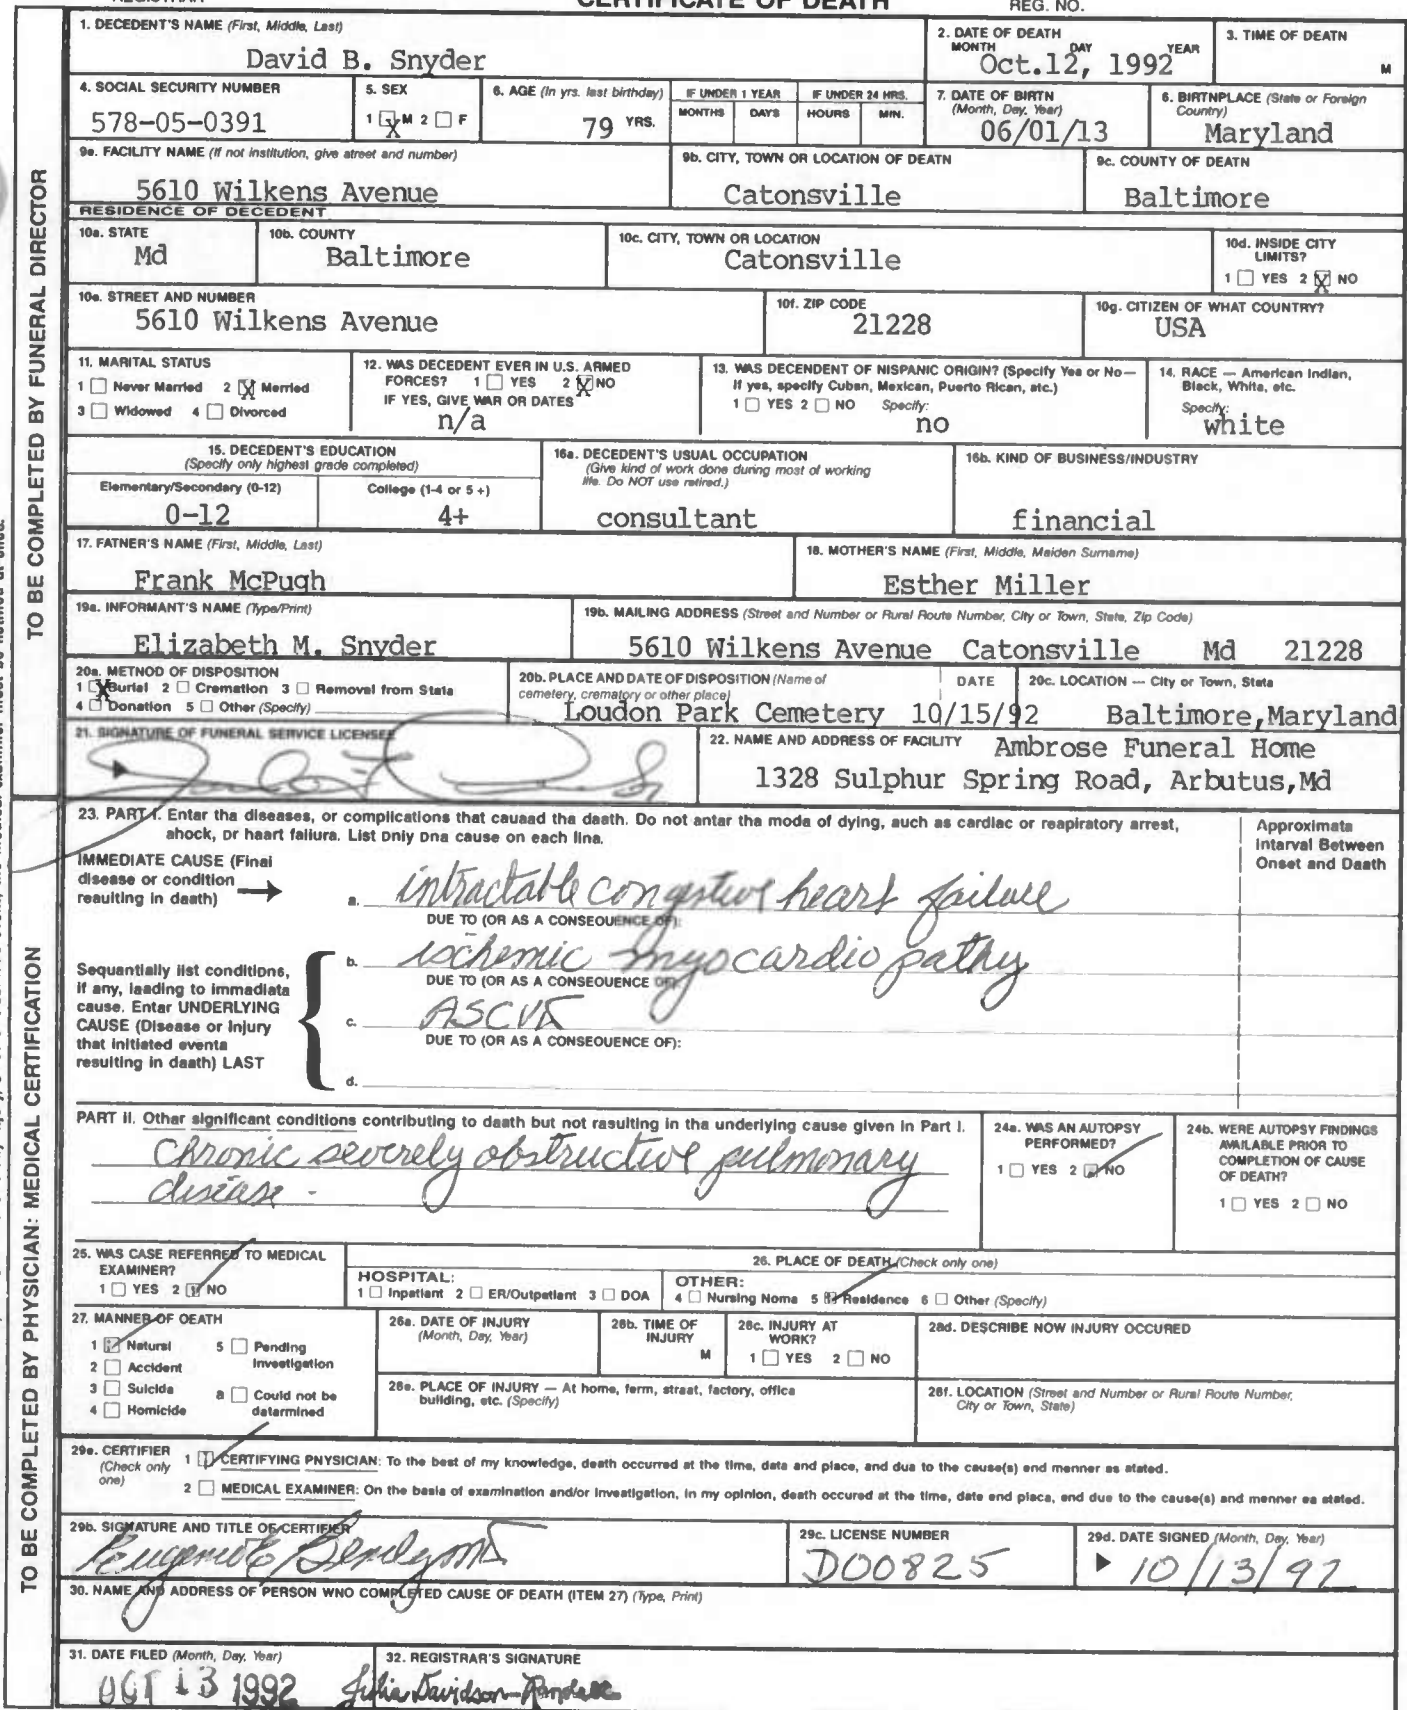 CERTIFICATE OF DEATH
REG. NO.
TO BE COMPLETED BY FUNERAL DIRECTOR
1. DECEDENT'S NAME (First, Middle, Last)
David B. Snyder
2. DATE OF DEATH
MONTH DAY YEAR
Oct.12, 1992
3. TIME OF DEATH
M
4. SOCIAL SECURITY NUMBER
578-05-0391
5. SEX
1 M 2 F
6. AGE (In yrs. last birthday)
79 YRS.
IF UNDER 1 YEAR
MONTHS DAYS
IF UNDER 24 HRS.
HOURS MIN.
7. DATE OF BIRTN
(Month, Day, Year)
06/01/13
6. BIRTNPLACE (State or Foreign
Country)
Maryland
9e. FACILITY NAME (If not institution, give atreet and number)
5610 Wilkens Avenue
9b. CITY, TOWN OR LOCATION OF DEATH
Catonsville
9c. COUNTY OF DEATN
Baltimore
RESIDENCE OF DECEDENT
10a. STATE
Md
10b. COUNTY
Baltimore
10c. CITY, TOWN OR LOCATION
Catonsville
10d. INSIDE CITY
LIMITS?
1 YES 2 X NO
10e. STREET AND NUMBER
5610 Wilkens Avenue
10f. ZIP CODE
21228
10g. CITIZEN OF WHAT COUNTRY?
USA
11. MARITAL STATUS
1 Never Married 2 X Merried
3 Widowed 4 Divorced
12. WAS DECEDENT EVER IN U.S. ARMED
FORCES? 1 YES 2 X NO
IF YES, GIVE WAR OR DATES
n/a
13. WAS DECENDENT OF NISPANIC ORIGIN? (Specify Yea or No—
If yes, specify Cuban, Mexican, Puerto Rican, atc.)
1 YES 2 NO Specify:
no
14. RACE — American Indian,
Black, Whita, etc.
Specify:
white
15. DECEDENT'S EDUCATION
(Specify only highest grade completed)
Elementary/Secondary (0-12)
0-12
College (1-4 or 5 +)
4+
16a. DECEDENT'S USUAL OCCUPATION
(Give kind of work done during most of working
life. Do NOT use retired.)
consultant
16b. KIND OF BUSINESS/INDUSTRY
financial
17. FATNER'S NAME (First, Middle, Last)
Frank McPugh
18. MOTHER'S NAME (First, Middle, Maiden Surname)
Esther Miller
19a. INFORMANT'S NAME (Type/Print)
Elizabeth M. Snyder
19b. MAILING ADDRESS (Street and Number or Rural Route Number, City or Town, State, Zip Code)
5610 Wilkens Avenue Catonsville Md 21228
20a. METNOD OF DISPOSITION
1 X Burial 2 Cremation 3 Removal from Stata
4 Donation 5 Other (Specify)
20b. PLACE AND DATE OF DISPOSITION (Name of
cemetery, crematory or other place)
DATE
Loudon Park Cemetery 10/15/92
20c. LOCATION — City or Town, Stata
Baltimore,Maryland
21. SIGNATURE OF FUNERAL SERVICE LICENSEE
22. NAME AND ADDRESS OF FACILITY Ambrose Funeral Home
1328 Sulphur Spring Road, Arbutus,Md
TO BE COMPLETED BY PHYSICIAN: MEDICAL CERTIFICATION
23. PART I. Enter tha diseases, or complications that cauaad tha daath. Do not antar tha moda of dying, auch as cardlac or reapiratory arrest,
ahock, or haart failura. List only ona cause on each lina.
Approximata
Intarval Between
Onset and Daath
IMMEDIATE CAUSE (Final
disease or condition
reaulting in daath)
a. intractable congestive heart failure
DUE TO (OR AS A CONSEOUENCE OF):
b. ischemic myocardiopathy
DUE TO (OR AS A CONSEOUENCE OF):
c. ASCVD
DUE TO (OR AS A CONSEOUENCE OF):
d.
Sequantially list conditions,
if any, laading to immadiata
cause. Enter UNDERLYING
CAUSE (Disease or injury
that initiated eventa
resulting in daath) LAST
PART II. Other significant conditions contributing to daath but not rasulting in tha underlying cause given in Part I.
Chronic severely obstructive pulmonary
disease.
24a. WAS AN AUTOPSY
PERFORMED?
1 YES 2 NO
24b. WERE AUTOPSY FINDINGS
AVAILABLE PRIOR TO
COMPLETION OF CAUSE
OF DEATH?
1 YES 2 NO
25. WAS CASE REFERRED TO MEDICAL
EXAMINER?
1 YES 2 NO
26. PLACE OF DEATH (Check only one)
HOSPITAL:
1 Inpatlant 2 ER/Outpatlant 3 DOA
OTHER:
4 Nursing Noma 5 Residence 6 Other (Specify)
27. MANNER OF OEATH
1 Natural 5 Pending
Investigation
2 Accident
3 Suicida 8 Could not be
datarmined
4 Homicide
26a. DATE OF INJURY
(Month, Day, Year)
28b. TIME OF
INJURY
M
28c. INJURY AT
WORK?
1 YES 2 NO
28d. DESCRIBE NOW INJURY OCCURED
28e. PLACE OF INJURY — At home, ferm, straat, factory, offica
building, etc. (Specify)
26f. LOCATION (Street and Number or Rural Route Number,
City or Town, State)
29e. CERTIFIER
(Check only
one)
1 CERTIFYING PNYSICIAN: To the best of my knowledge, death occurred at the time, data and place, and dua to the cause(s) end menner as atated.
2 MEDICAL EXAMINER: On the basia of examination and/or investigation, in my opinion, death occured at the time, date end placa, end due to the cause(s) and menner ea stated.
29b. SIGNATURE AND TITLE OF CERTIFIER
29c. LICENSE NUMBER
D00825
29d. DATE SIGNED (Month, Day, Year)
10/13/92
30. NAME AND ADDRESS OF PERSON WNO COMPLETED CAUSE OF DEATH (ITEM 27) (Type, Print)
31. DATE FILED (Month, Day, Year)
OCT 13 1992
32. REGISTRAR'S SIGNATURE
Julia Davidson-Randall